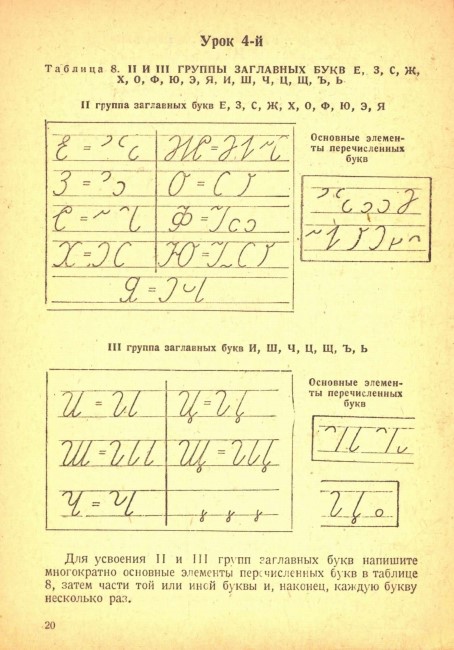 Урок 4-й
Таблица 8. II И III ГРУППЫ ЗАГЛАВНЫХ БУКВ Е, З, С, Ж,
Х, О, Ф, Ю, Э, Я, И, Ш, Ч, Ц, Щ, Ъ, Ь
II группа заглавных букв Е, З, С, Ж, Х, О, Ф, Ю, Э, Я
Основные элемен-
ты перечисленных
букв
Е = Ж =
З = О =
С = Ф =
Х = Ю =
Я =
III группа заглавных букв И, Ш, Ч, Ц, Щ, Ъ, Ь
Основные элемен-
ты перечисленных
букв
И = Ц =
Ш = Щ =
Ч =
Для усвоения II и III групп заглавных букв напишите
многократно основные элементы перечисленных букв в таблице
8, затем части той или иной буквы и, наконец, каждую букву
несколько раз.
20